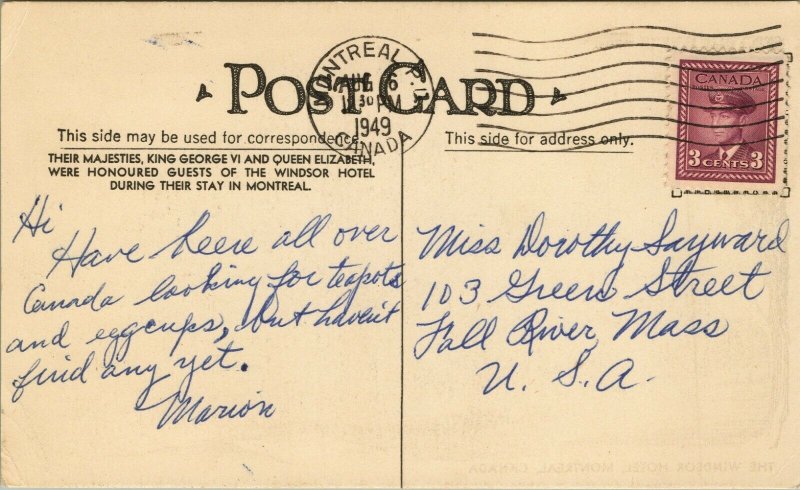 POST CARD
MONTREAL P.Q.
AUG 6
30 PM
1949
CANADA
CANADA
3 CENTS 3
This side may be used for correspondence.
This side for address only.
THEIR MAJESTIES, KING GEORGE VI AND QUEEN ELIZABETH,
WERE HONOURED GUESTS OF THE WINDSOR HOTEL
DURING THEIR STAY IN MONTREAL.
Hi
Have beene all over
Canada looking for teapots
and eggcups, but haven't
find any yet.
Marion
Miss Dorothy Sayward
103 Green Street
Fall River, Mass
U. S. A.
THE WINDSOR HOTEL, MONTREAL, CANADA